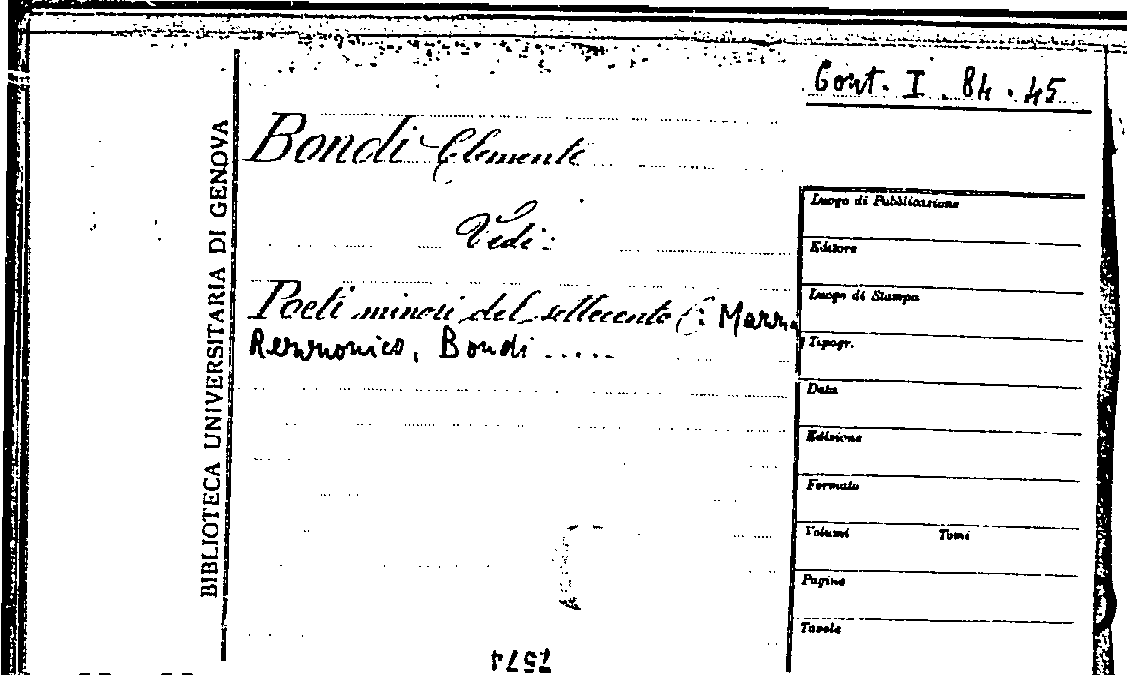 Cont. I. 84. 45
BIBLIOTECA UNIVERSITARIA DI GENOVA
Bondi Clemente
Vedi:
Poeti minori del settecento
Rezzonico, Bondi .....
Luogo di Pubblicazione
Editore
Luogo di Stampa
Tipogr.
Data
Edizione
Formato
Volumi Tomi
Pagine
Tavole
7574